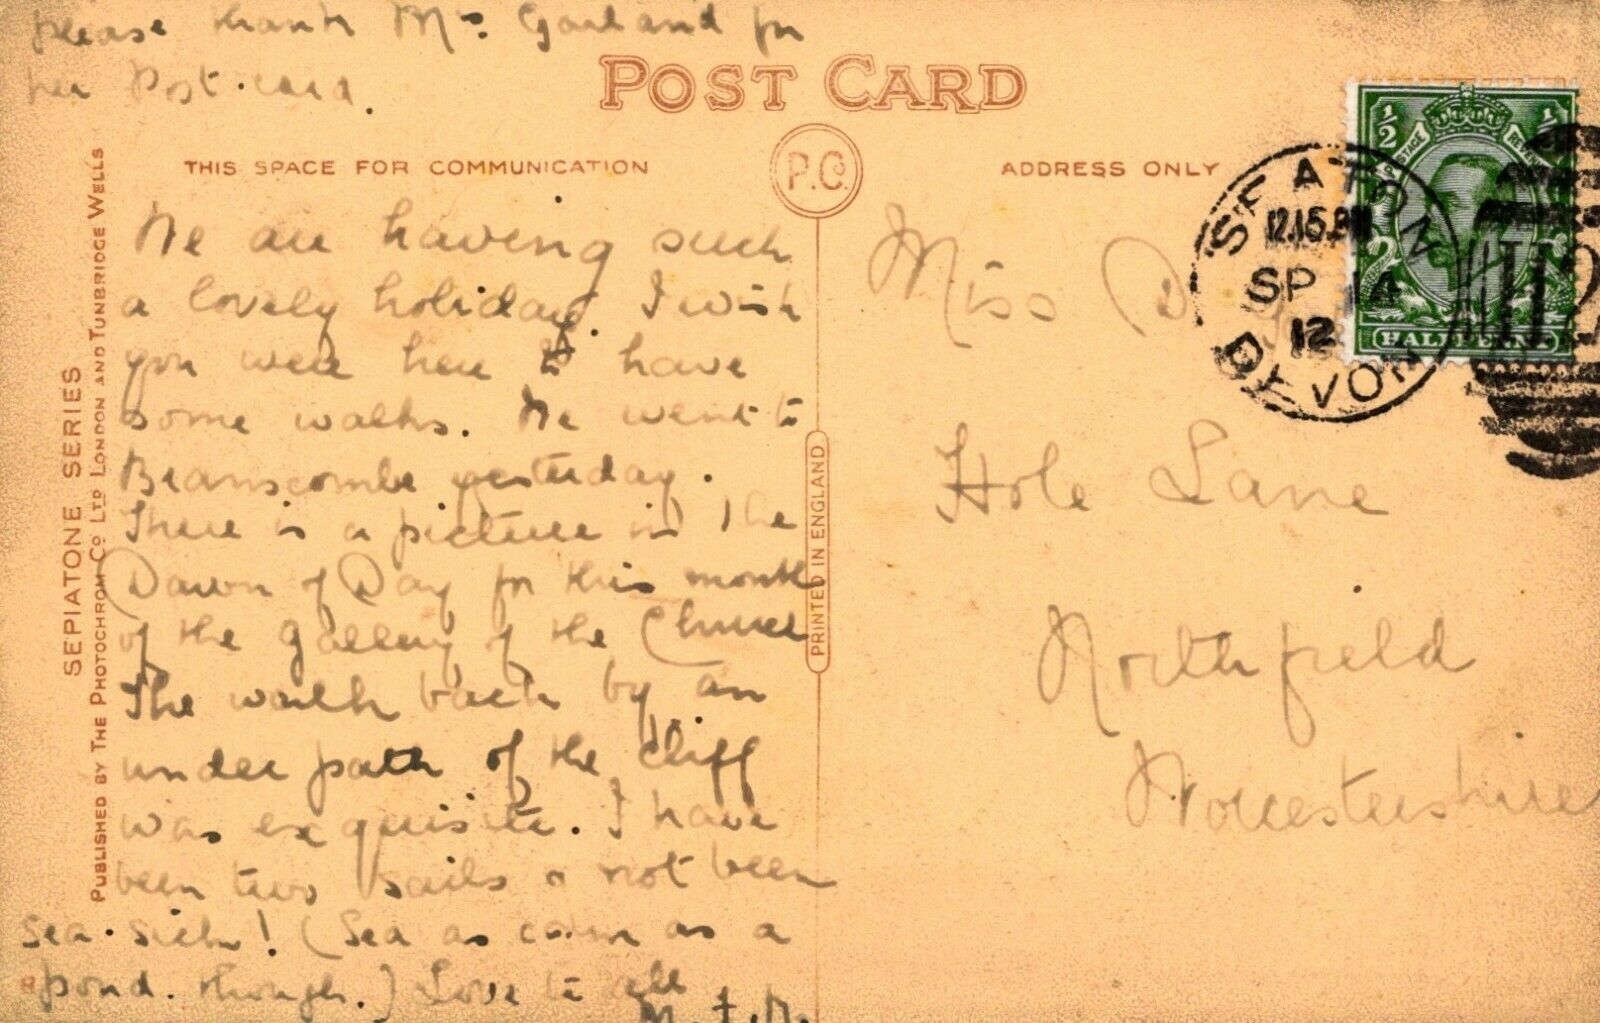 please thank Mrs. Garland for
her Post.card.
POST CARD
P.C.
THIS SPACE FOR COMMUNICATION
ADDRESS ONLY
SEPIATONE SERIES
PUBLISHED BY THE PHOTOCHROM CO LTD LONDON AND TUNBRIDGE WELLS
PRINTED IN ENGLAND
We are having such
a lovely holiday. I wish
you were here to have
some walks. We went to
Branscombe yesterday.
There is a picture in the
Dawn of Day for this month
of the gallery of the Church
The walk back by an
under path of the cliff
was exquisite. I have
been two sails & not been
Sea-sick! (Sea as calm as a
pond. though.) Love to all
Miss D
Hole Lane
Northfield
Worcestershire
SEATON
12.15.PM
SP 14
12
DEVON
1/2
1/2
POSTAGE
REVENUE
HALFPENNY